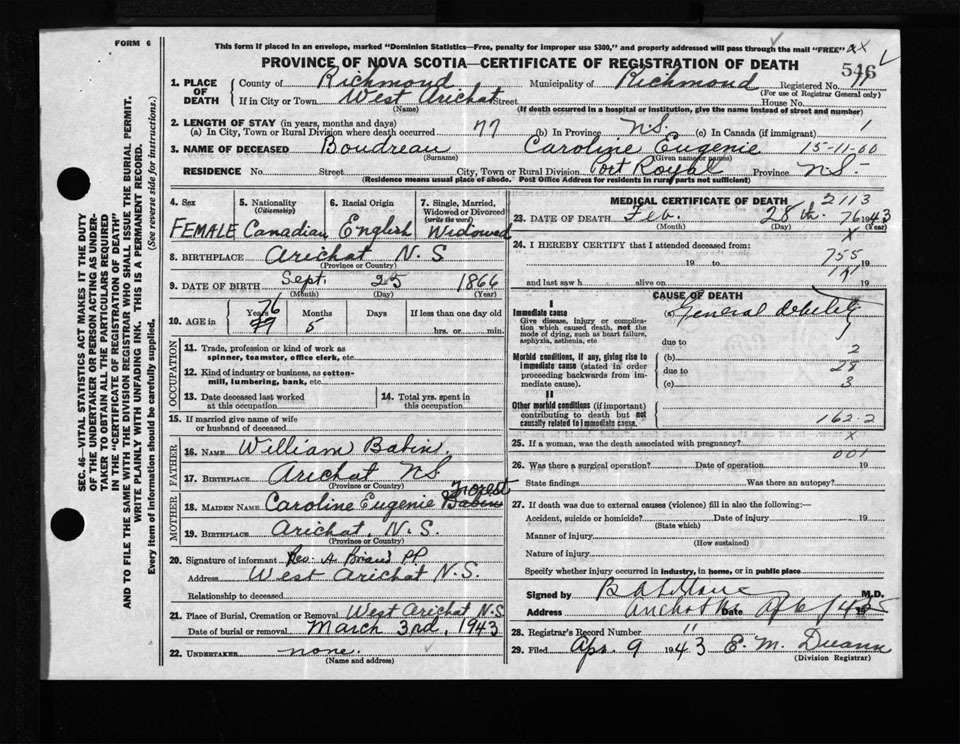 FORM 6
This form if placed in an envelope, marked "Dominion Statistics—Free, penalty for improper use $300," and properly addressed will pass through the mail "FREE"
PROVINCE OF NOVA SCOTIA—CERTIFICATE OF REGISTRATION OF DEATH
546
1. PLACE OF DEATH
County of Richmond Municipality of Richmond Registered No.
(For use of Registrar General only)
If in City or Town West Arichat Street House No.
(Name) (If death occurred in a hospital or institution, give the name instead of street and number)
2. LENGTH OF STAY (in years, months and days)
(a) In City, Town or Rural Division where death occurred 77 (b) In Province N.S. (c) In Canada (if immigrant) 1
3. NAME OF DECEASED Boudreau Caroline Eugenie 15-11-00
(Surname) (Given name or names)
RESIDENCE No. Street City, Town or Rural Division Port Royal Province N.S.
(Residence means usual place of abode. Post Office Address for residents in rural parts not sufficient)
4. Sex FEMALE
5. Nationality (Citizenship) Canadian
6. Racial Origin English
7. Single, Married, Widowed or Divorced (write the word) Widowed
8. BIRTHPLACE Arichat N.S
(Province or Country)
9. DATE OF BIRTH Sept. 25 1866
(Month) (Day) (Year)
10. AGE in Years 76 Months 5 Days If less than one day old hrs. or min.
OCCUPATION
11. Trade, profession or kind of work as spinner, teamster, office clerk, etc.
12. Kind of industry or business, as cotton-mill, lumbering, bank, etc.
13. Date deceased last worked at this occupation
14. Total yrs. spent in this occupation
15. If married give name of wife or husband of deceased
FATHER
16. NAME William Babin
17. BIRTHPLACE Arichat NS
(Province or Country)
MOTHER
18. MAIDEN NAME Caroline Eugenie Babin Forest
19. BIRTHPLACE Arichat, N.S.
(Province or Country)
20. Signature of informant Rev. A Briand PP.
Address West Arichat N.S.
Relationship to deceased
21. Place of Burial, Cremation or Removal West Arichat N.S
Date of burial or removal March 3rd, 1943
22. UNDERTAKER none.
(Name and address)
MEDICAL CERTIFICATE OF DEATH
2113
23. DATE OF DEATH Feb. 28th 76 1943
(Month) (Day) (Year)
24. I HEREBY CERTIFY that I attended deceased from:
19 to 755 19
and last saw h alive on 19
CAUSE OF DEATH
I
Immediate cause
Give disease, injury or complication which caused death, not the mode of dying, such as heart failure, asphyxia, asthenia, etc
(a) General debility
due to
Morbid conditions, if any, giving rise to immediate cause (stated in order proceeding backwards from immediate cause).
(b) 2
due to 28
(c) 3
II
Other morbid conditions (if important) contributing to death but not causally related to immediate cause.
162-2
25. If a woman, was the death associated with pregnancy? x
001
26. Was there a surgical operation? Date of operation 19
State findings Was there an autopsy?
27. If death was due to external causes (violence) fill in also the following:—
Accident, suicide or homicide? Date of injury 19
(State which)
Manner of injury
(How sustained)
Nature of injury
Specify whether injury occurred in industry, in home, or in public place
Signed by M.D.
Address Arichat Date Ap 6/43
28. Registrar's Record Number 11
29. Filed Apr. 9 1943 E. M. Duann
(Division Registrar)
SEC. 46—VITAL STATISTICS ACT MAKES IT THE DUTY
OF THE UNDERTAKER OR PERSON ACTING AS UNDER-
TAKER TO OBTAIN ALL THE PARTICULARS REQUIRED
IN THE "CERTIFICATE OF REGISTRATION OF DEATH"
AND TO FILE THE SAME WITH THE DIVISION REGISTRAR WHO SHALL ISSUE THE BURIAL PERMIT.
WRITE PLAINLY WITH UNFADING INK. THIS IS A PERMANENT RECORD.
Every item of information should be carefully supplied. (See reverse side for instructions).